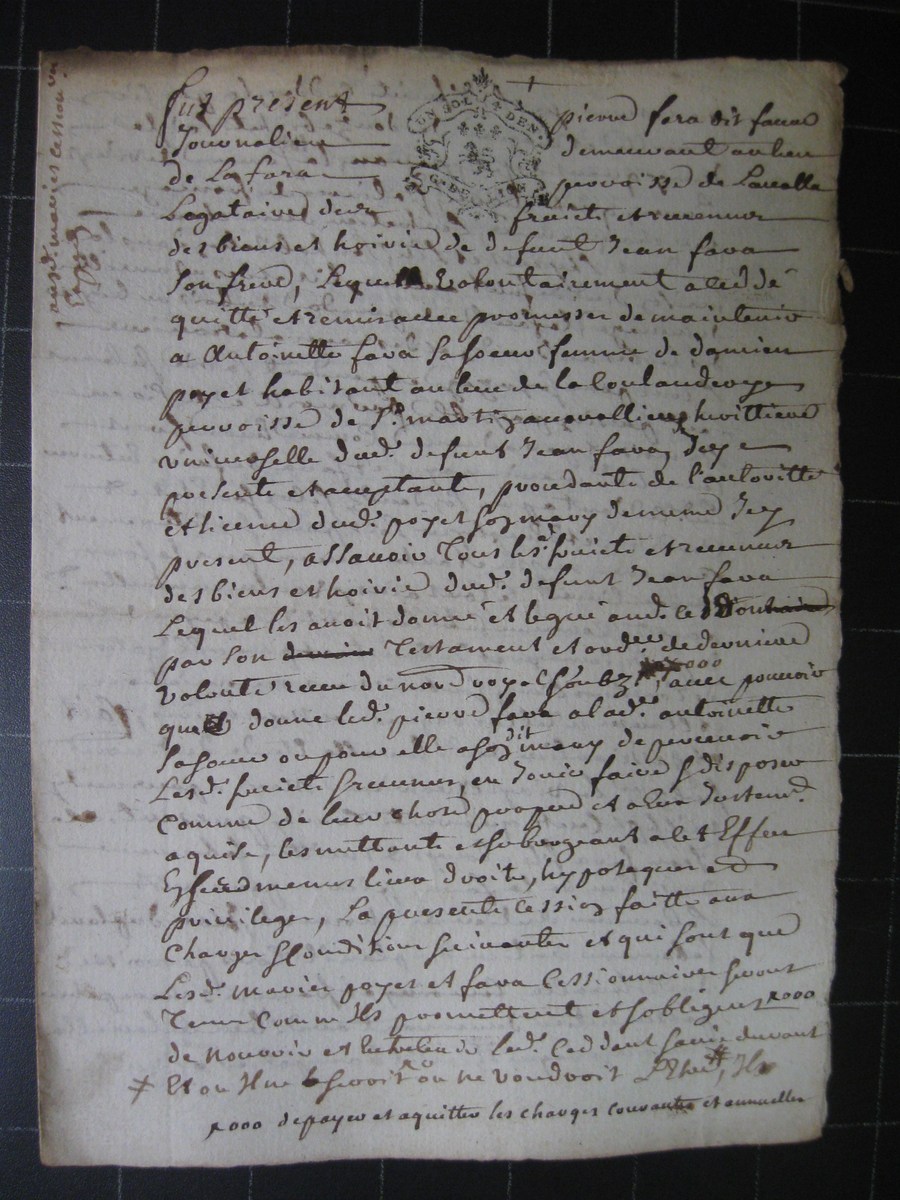 fut présent pierre fara dit favar
Journalier demeurant au lieu
de La fara parroisse de Lavalla
UN SOL DEN
G. DE LYON
Legataire des fruicts et revenus
des biens et hoirie de defunt Jean fara
son frere, Lequel volontairement a ceddé
quitté et remis avec promesses de maintenir
a Antoinette fara sa soeur femme de damien
poyet habitant au lieu de la
parroisse de St. martin heritiere
universelle dud. defunt Jean fara, Icy
presente et acceptante, procedante de l'authorité
et licence dud. poyet son mary de meme Icy
present, assavoir Tous les. fruicts et revenus
des biens et hoirie dud. defunt Jean fara
Lequel les avoit donné et legué aud.
par son Testament et ord.re de derniere
volonté receu du no.re royal soubz.né, avec pouvoir
que donne led. pierre fara a lad. antoinette
sa soeur ou pour elle a son dit mary de percevoir
Lesd. fruicts & revenus, en Jouir faire & disposer
comme de leur chose propre et a leur
aquise, les mettant et subrogeant a cet Effect
En ses memes lieu droits, hypoteques et
privileges, La presente cession faitte aux
charges & conditions suivantes et qui sont que
Lesd. mariés poyet et fara Cessionnaires seront
Tenus comm'Ils promettent et s'obligent xooo
de nourrir et entretenir led. ceddant sa vie durant
Et ou Il ne ou ne voudroit Ils
xooo de payer et aquitter les charges courantes et annuelles
ausd. mariés cession.res